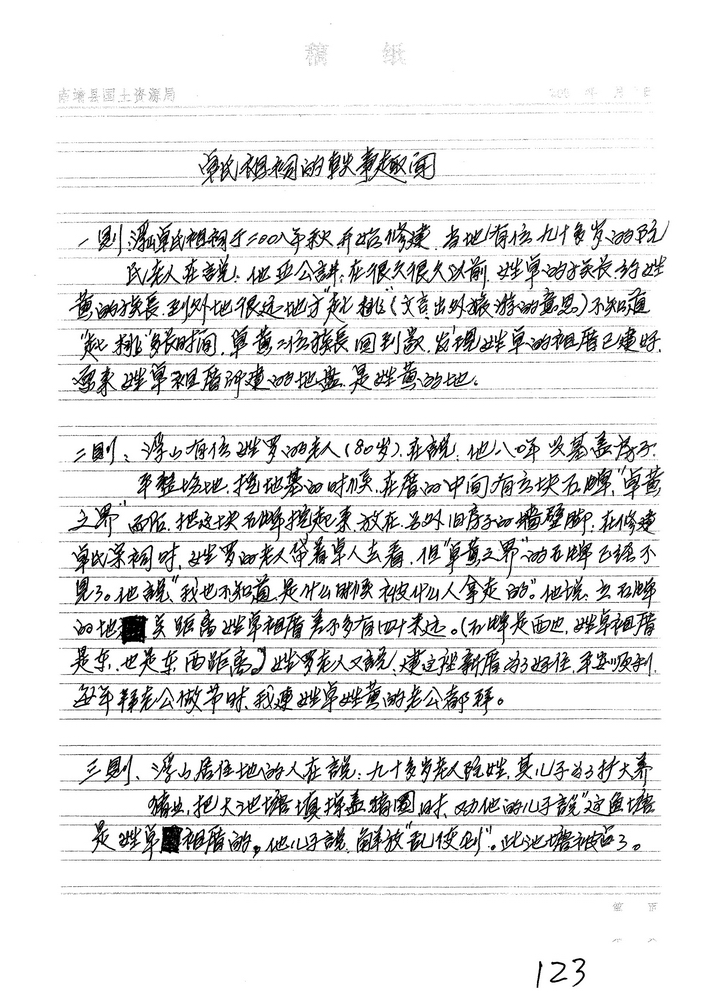 稿 纸
南靖县国土资源局 200 年 月 日
卓氏祖祠的轶事趣闻
一则、浮山卓氏祖祠于二00八年秋开始修建，当地有位九十多岁的阮
氏老人在说，他亚公讲：在很久很久以前，姓卓的族长和姓
黄的族长，到外地很远地方"起排"（文言出外旅游的意思）不知道
"起排"多长时间，卓黄二位族长回到家，发现姓卓的祖厝已建好，
原来姓卓祖厝所建的地盘，是姓黄的地。
二则、浮山有位姓罗的老人（80岁），在说，他八0年 基盖房子，
平整场地，挖地基的时候，在厝的中间有立块石碑，"卓黄
之界" 而后，把这块石碑挖起来放在另外旧房子的墙壁脚，在修建
卓氏宗祠时，姓罗的老人带着卓人去看，但"卓黄之界"的石碑已经不
见了。他说"我也不知道，是什么时候被什么人拿走的"。他说，立石碑
的地 距离姓卓祖厝差不多有四十来 。（石碑是西边，姓卓祖厝
是东，也是东西距离）姓罗老人又说：建这座新厝为了好住，平安顺利，
每年拜老公做节时，我连姓卓姓黄的老公都拜。
三则、浮山居住地的人在说：九十多岁老人阮姓，其儿子为了扩大养
猪业，把大池塘填掉盖猪圈时，劝他的儿子说"这鱼塘
是姓卓祖厝的，他儿子说，解放"乱使 "。此池塘被 了。
第 页
123